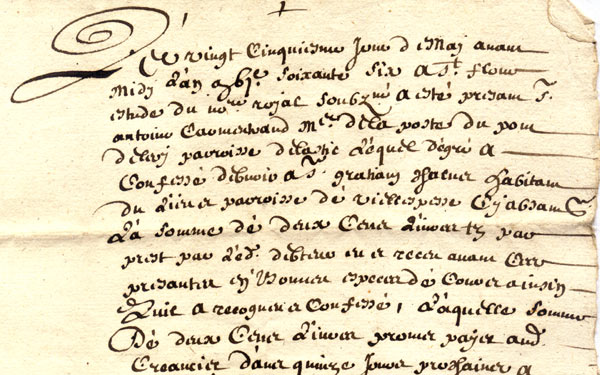 Le vingt Cinquiesme Jour de May avant
Midy L'an xvjc soixante six a St flour
estude du nore royal soubzné a esté presant Sr
antoine Mre de la poste du pon
de lery parroisse de lastic Lequel de gré a
Confessé debvoir a Sr habitant
du parroisse de vieillespesse Cy absant
La somme de deux Cens Livres tz par
prest par Led. debteur eu et receu avant Ces
presantes en bonnes especes de Cours ainsin
Quil a recogneu et Confessé, Laquelle somme
De deux Cens Livres promet payer aud.
Creancier dans quinze Jours prochains a